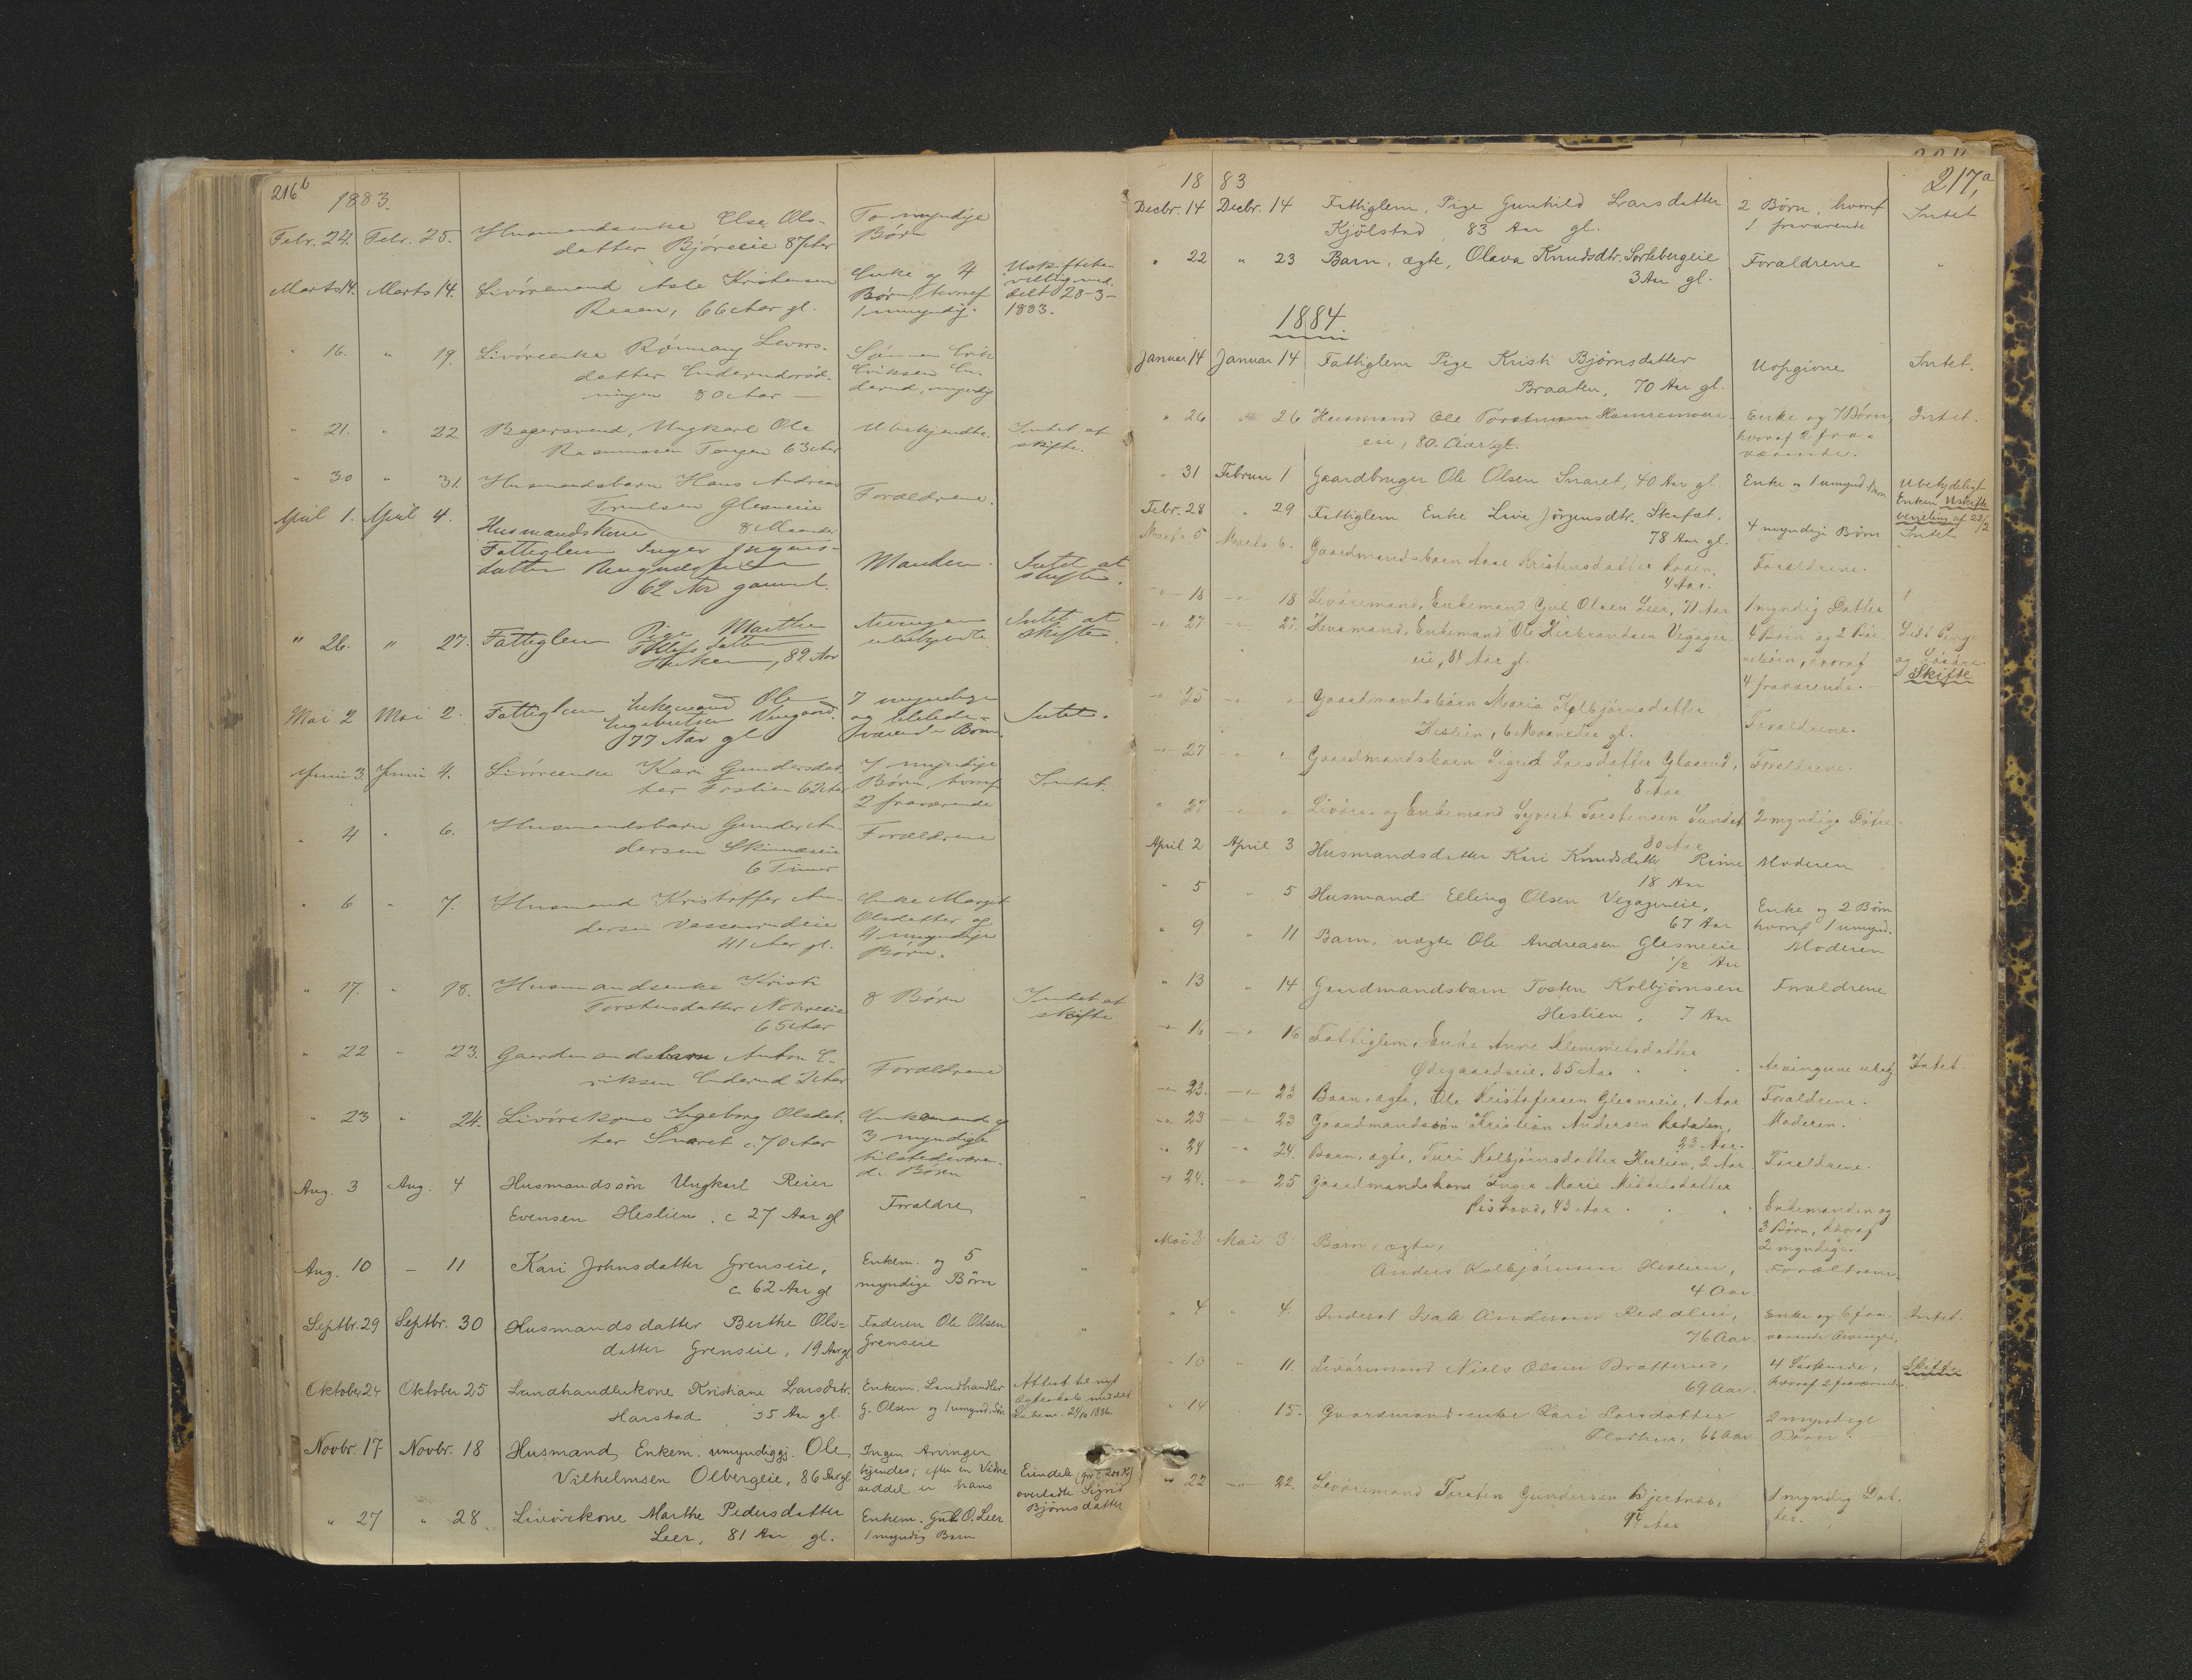 216b
1883.
Febr. 24. Febr. 25. Husmandsenke Else Ols- To myndige
datter Bjøreeie 87 Aar Børn
Marts 14. Marts 14. Livöremand Asle Kristensen Enke og 4 Uskiftebe-
Børn, hvoraf villing med-
66 Aar gl. 1 umyndig. delt 28-3-
1883.
" 16. " 19. Livöreenke Rönnaug Levors- Sönnen Erik
datter Enderudsröd- Eriksen En-
ningen 80 Aar — derud, myndig
" 21. " 22 Bagersvend, Ungkarl Ole Ubekjendte. Intet at
Rasmussen Tangen 63 Aar skifte.
" 30 " 31. Husmandsbarn Hans Andreas Forældrene.
Truulsen Glesneeie
8 Maaneder
April 1. April 4. Husmandskone
Fattiglem Inger Jngens-
datter Manden. Intet at
62 Aar gammel. skifte.
" 26. " 27. Fattiglem Pige Marthe Arvingene Intet at
datter ubekjendte skifte
, 82 Aar
Mai 2 Mai 2. Fattiglem Enkemand Ole 7 myndige
Engebretsen og tilstede- Intet.
77 Aar gl værende Børn.
Juni 3. Juni 4. Livöreenke Kari Gundersdat- 7 myndige
ter Foslien 62 Aar Børn, hvoraf Intet.
2 fraværende
" 4 " 6. Husmandsbarn Gunder An- Forældrene
dersen Skinneseie
6 Timer
" 6 " 7. Husmand Kristoffer An- Enke Margit
dersen Vassenrudeie Olsdatter og
41 Aar gl. 4 umyndige
Børn.
" 17. " 18. Husmandsenke Kristi 8 Børn Intet at
Torstensdatter skifte
65 Aar
" 22 " 23. Gaardmandsbarn Anton E- Forældrene
riksen Enderud 2 Aar
" 23 " 24. Livörekone Ingeborg Olsdat- Enkemand og
ter Snaret c. 70 Aar 3 myndige
tilstedeværen-
de Børn
Aug. 3 Aug. 4 Husmandssön Ungkarl Reier
Evensen Heslien. c 27 Aar gl Forældre "
Aug. 10 — 11 Kari Johnsdatter Grenseie, Enkem. og 5
c. 62 Aar gl myndige Börn "
Septbr. 29 Septbr. 30 Husmandsdatter Berthe Ols= Faderen Ole Olsen "
datter Grenseie, 19 Aar gl Grenseie
Oktober 24 Oktober 25 Landhandlerkone Kristiane Larsdatr. Enkem. Landhandler Attest til nyt
Harstad 35 Aar gl. G. Olsen og 1 umynd. Sön Ægteskab meddelt
Enkem. 21/10 1886
Novbr. 17 Novbr. 18 Husmand, Enkem. umyndiggj. Ole Ingen Arvinger
Vilhelmsen Olbergeie, 86 Aar gl kjendes; efter en Vidne Eiendele (
seddel er hans overladte Sigrid
Björnsdatter
" 27 " 28 Livörekone Marthe Pedersdatter Enkem. Gul O. Leer
Leer, 81 Aar gl. 1 myndig Barn
18 83 217,a
Decbr. 14 Decbr. 14 Fattiglem, Pige Gunhild Larsdatter 2 Börn, hvoraf Intet
Kjölstad, 83 Aar gl. 1 fraværende
" 22 " 23 Barn, ægte, Olava Knudsdtr. Sorkbergeie Forældrene "
3 Aar gl.
1884
Januar 14 Januar 14 Fattiglem Pige Kristi Björnsdatter Uopgivne Intet.
Braaten, 70 Aar gl.
" 26 26 Husmand Ole Torstensen Enke og 7 Børn, Intet.
eie, 80. Aar gl. hvoraf 2 fra-
værende.
" 31 Februar 1 Gaardbruger Ole Olsen Snaret, 40 Aar gl. Enke og 1 umynd. Barn Ubetydeligt
Enken Uskifte
bevilling af 22/2
Febr. 28 " 29 Fattiglem Enke Live Jörgensdtr. Skafat,
78 Aar gl. 4 myndige Börn Intet
Marts 5 Marts 6. Gaardmandsbarn Aase Kristensdatter Forældrene.
4 Aar.
-"- 18 -"- 18 Livöremand, Enkemand Gul Olsen Leer, 71 Aar 1 myndig Datter
-"- 27 -"- 27. Husmand, Enkemand Ole Herbrandsen Vegager- 4 Børn og 2 Bör- Lidt Penge
eie, 81 Aar gl. nebörn, hvoraf og Lösöre.
4 fraværende. Skifte
-"- 25 -"- " Gaardmandsbarn Maria Kolbjörnsdatter
Heslien, 6 Maaneder gl. Forældrene.
-"- 27 -"- " Gaardmandsbarn Sigrid Larsdatter Glaarud, Forældrene.
8 Aar
" 27 -"- " Livöre- og Enkemand Syvert Torstensen Sundet 2 myndige Dötre
80 Aar
April 2 April 3 Husmandsdatter Kari Knudsdattr Rime Moderen
18 Aar
" 5 " 5 Husmand Elling Olsen Vegagereie, Enke og 2 Börn
67 Aar hvoraf 1 umynd.
" 9 " 11 Barn, uægte Ole Andreasen Glesneeie Moderen
1/2 Aar
" 13 " 14 Gaardmandsbarn Tosten Kolbjörnsen Forældrene
Heslien, 7 Aar
-"- 16 -"- 16 Fattiglem, Enke Anne Klemmetsdatter
Ødegaardseie, 85 Aar . . Arvingerne ubekj. Intet
-"- 23. -"- 23 Barn, ægte, Ole Kristofersen Glesneeie, 1 Aar Forældrene.
-"- 23 -"- 23 Gaardmandssön Kristian Andersen Moderen.
23 Aar.
-"- 24 -"- 24. Barn, ægte, Turi Kolbjörnsdatter Heslien, 2 Aar Forældrene.
-"- 24. -"- 25 Gaardmandskone Inger Marie Mikkelsdatter
43 Aar . . . Enkemanden og
3 Börn, hvoraf
2 myndige.
Mai 3 Mai 3 Barn, ægte,
Anders Kolbjørnsen Heslien, Forældrene.
4 Aar
" 4 " 4. Inderst Isak Andersen Enke og 6 fra- Intet.
76 Aar. værende Arvinger.
" 10 " 11. Livöremand Niels Olsen Bratterud, 4 Söskende, Skifte
69 Aar. hvoraf 2 fraværende.
" 14 15. Gaardmandsenke Kari Larsdatter 2 myndige
66 Aar Börn.
-"- 22 -"- 22. Livöremand Torsten Gundersen Bjertnæs, 1 myndig Dat-
94 Aar ter.